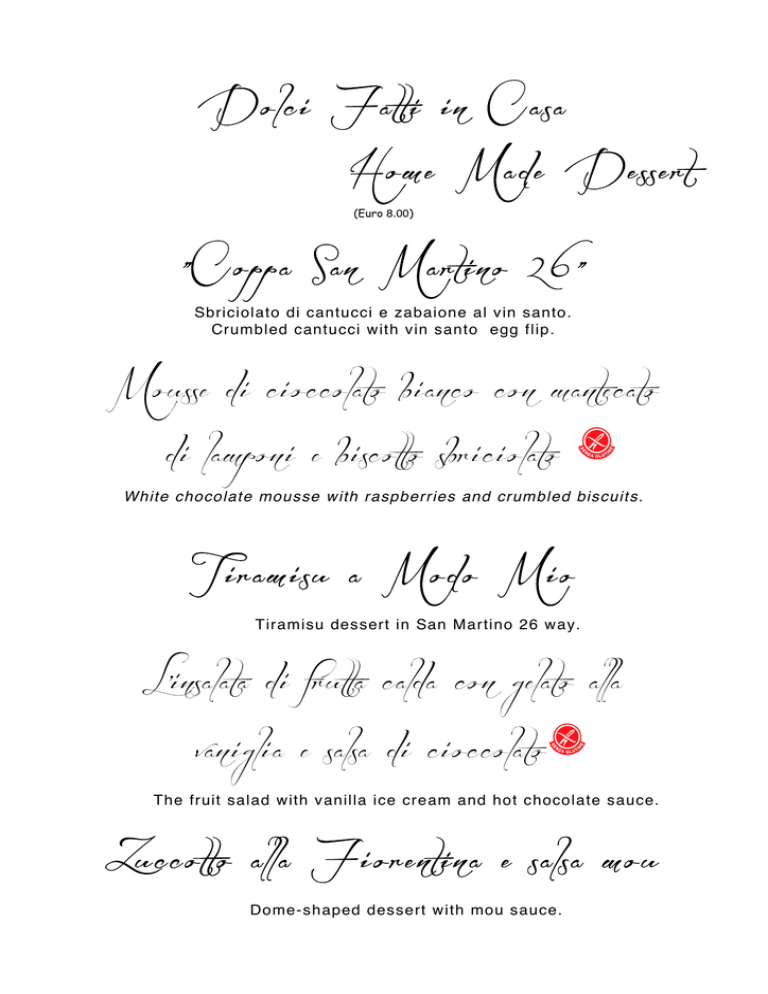 Dolci Fatti in Casa
Home Made Dessert
(Euro 8.00)
"Coppa San Martino 26"
Sbriciolato di cantucci e zabaione al vin santo.
Crumbled cantucci with vin santo egg flip.
Mousse di cioccolato bianco con mantecato
di lamponi e biscotto sbriciolato
SENZA GLUTINE
White chocolate mousse with raspberries and crumbled biscuits.
Tiramisu a Modo Mio
Tiramisu dessert in San Martino 26 way.
L'insalata di frutta calda con gelato alla
vaniglia e salsa di cioccolato
SENZA GLUTINE
The fruit salad with vanilla ice cream and hot chocolate sauce.
Zuccotto alla Fiorentina e salsa mou
Dome-shaped dessert with mou sauce.